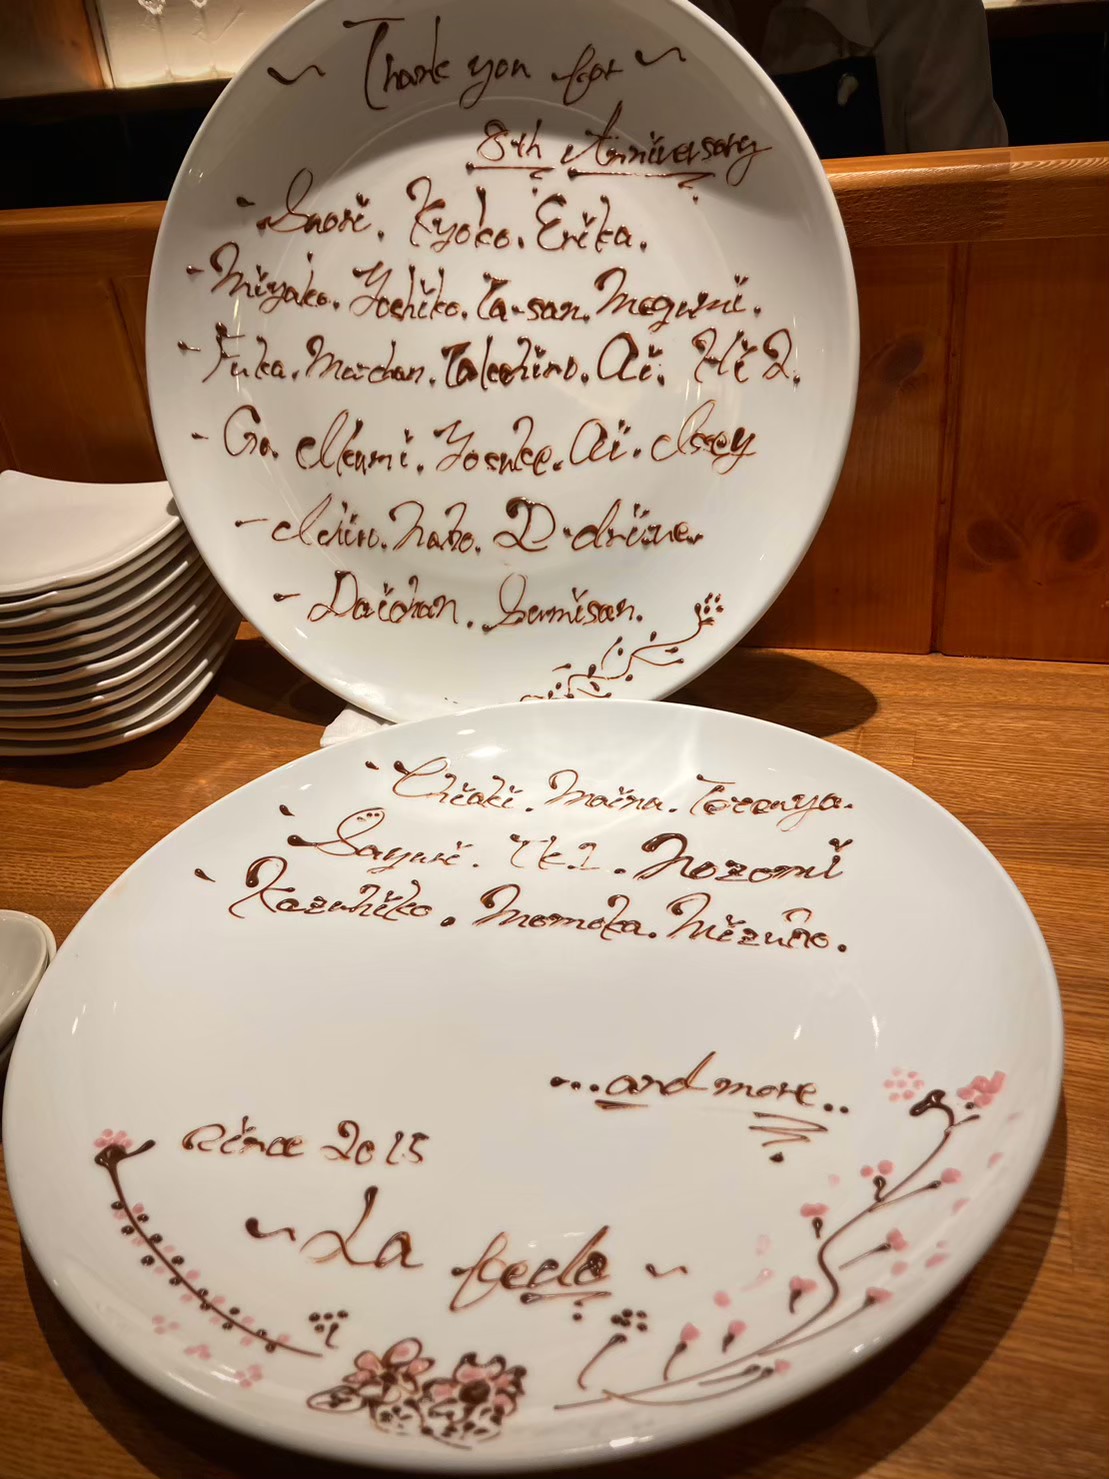 ~ Thank you for ~
8th Anniversary
- Saori. Kyoko. Erika.
- Miyako. Yoshiko. Ta-san. Megumi.
- Fuka. Ma-chan. Takahiro. Ai.
- Ga. Akami. Yosuke. Ai. Issey
- Ichiro. Nabo.
- Daichan. Sumisan.
- Chiaki. Maina.
- Sayuri. Nozomi
- Kazuhiko. Momoka. Mizuho.
...and more..
Since 2015
~ La feela ~